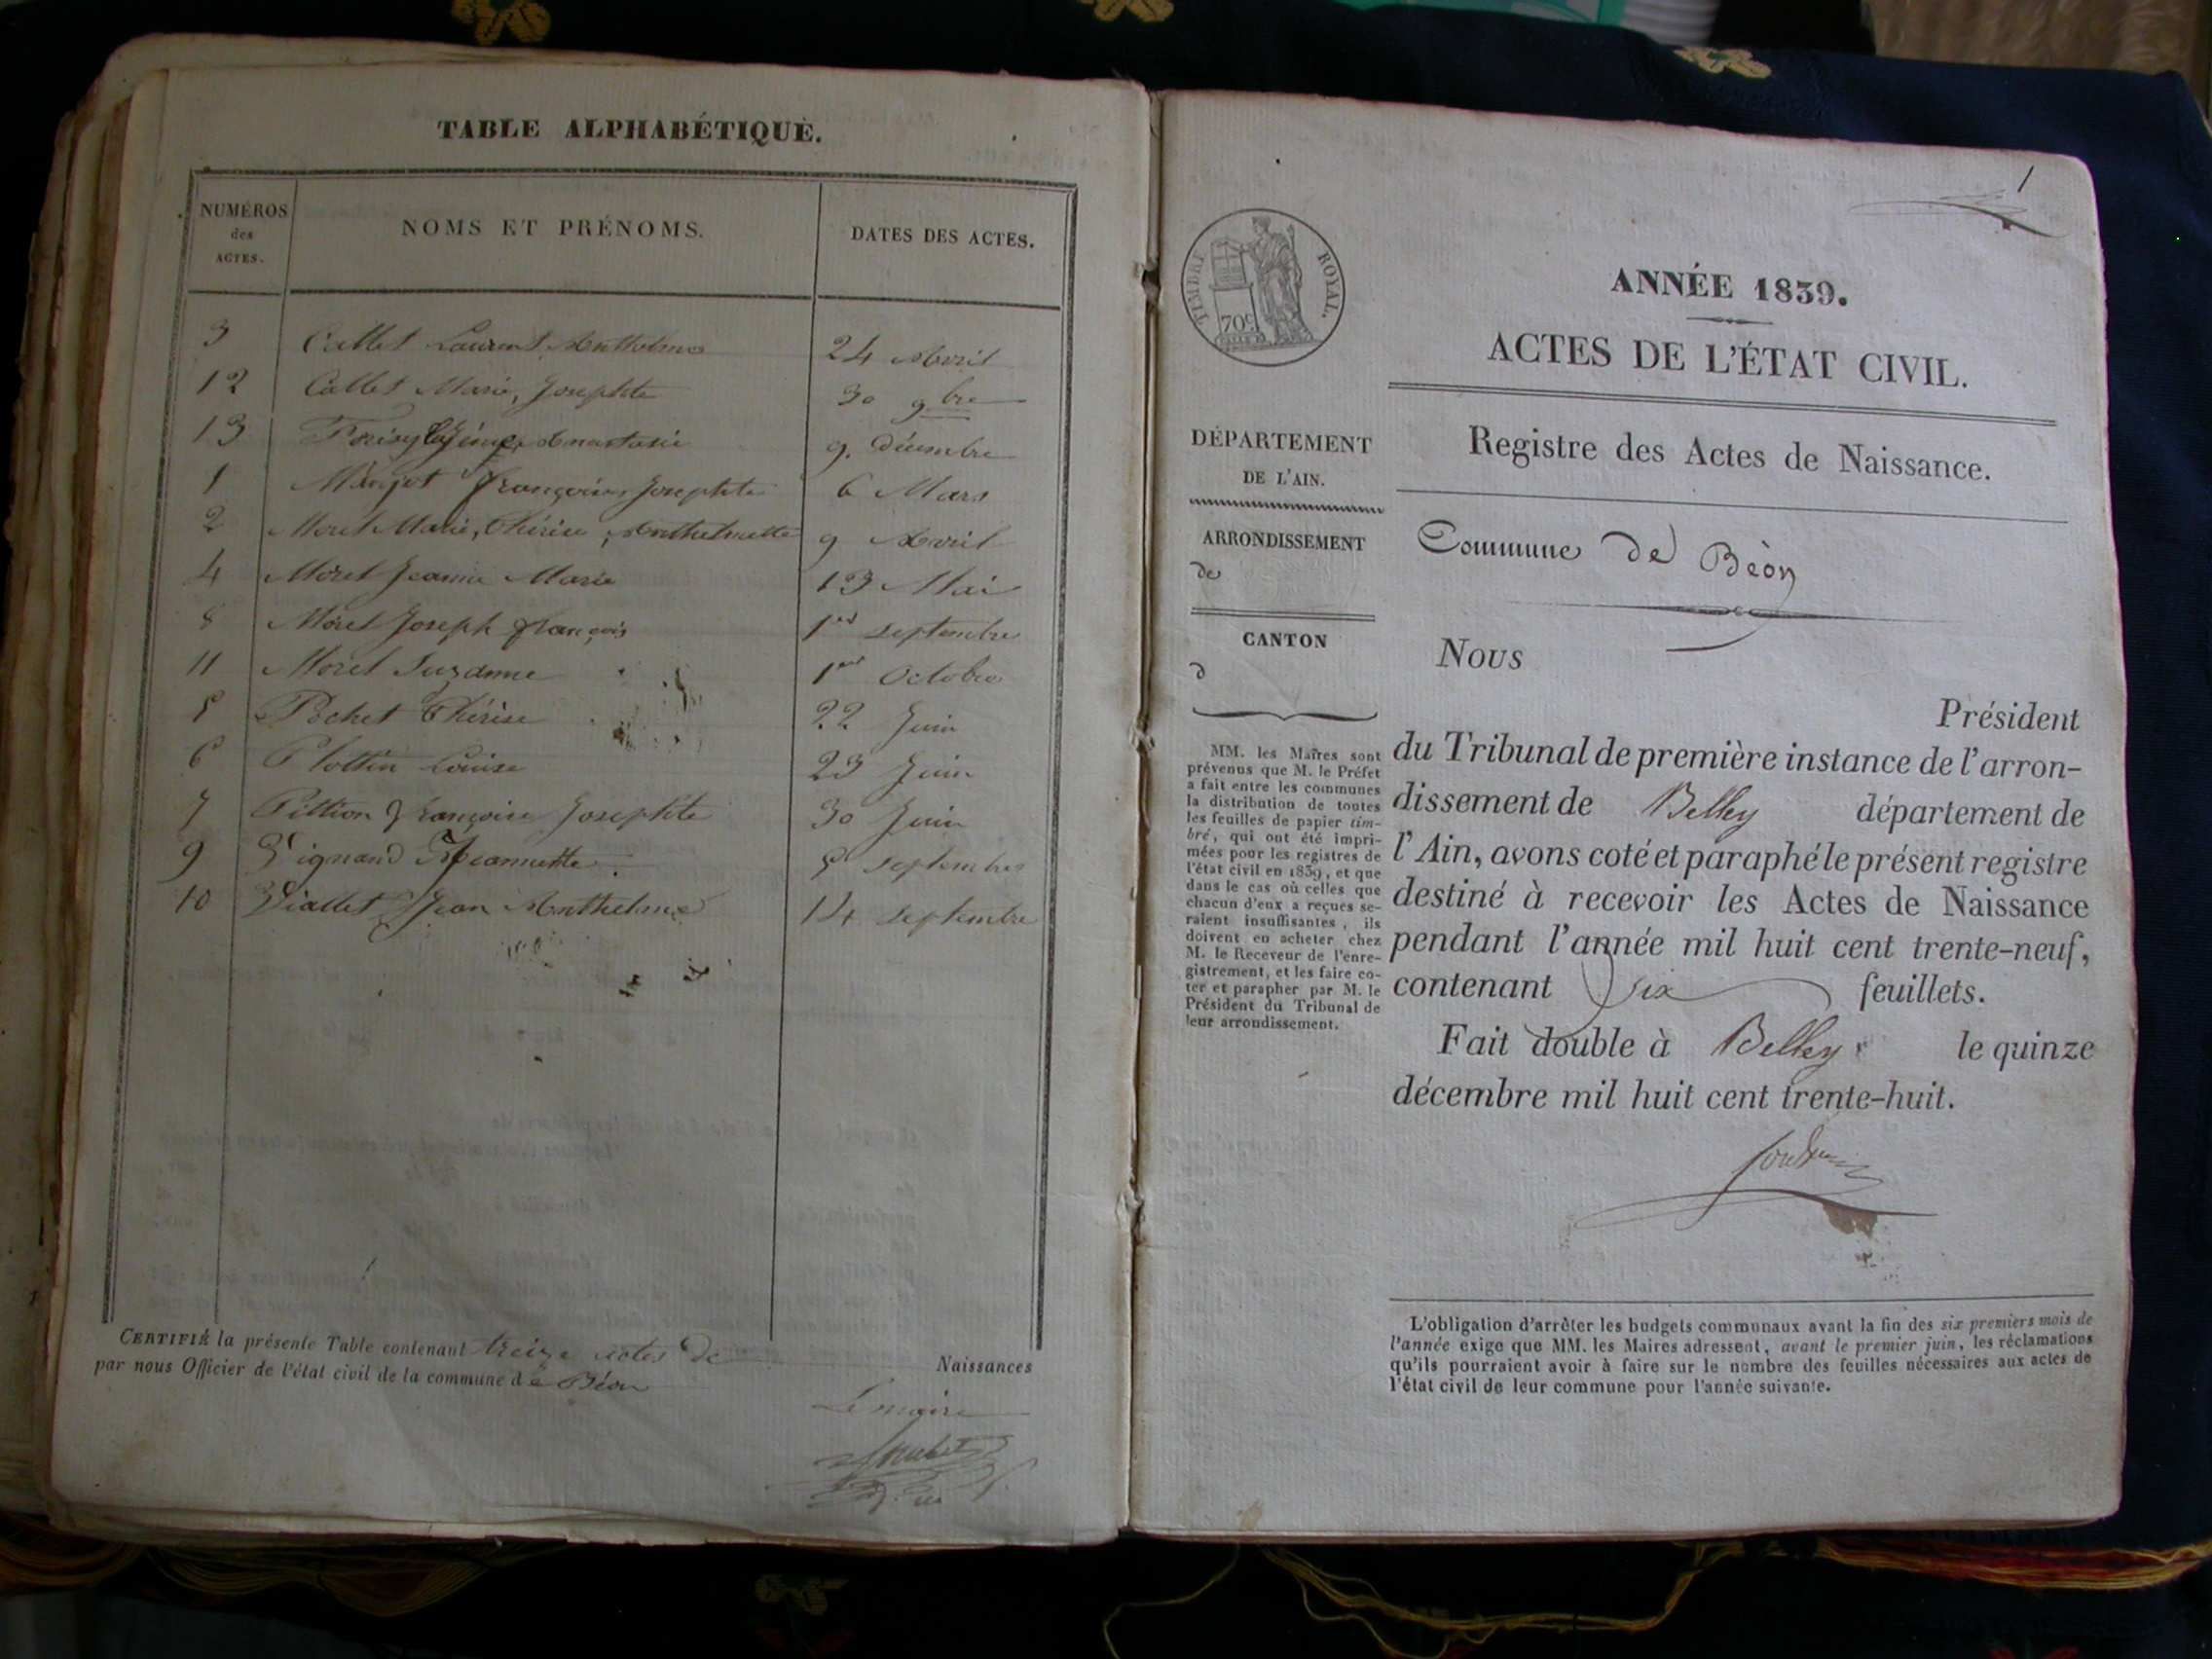 TABLE ALPHABÉTIQUE.
NUMÉROS
des
ACTES.
NOMS ET PRÉNOMS.
DATES DES ACTES.
3 Callet Laurent Anthelme 24 Avril
12 Callet Marie, Josephte 30 9bre
13 Anastasie 9. Décembre
1 Françoise Josephte 6 Mars
2 Morel Marie, Thérèse, Anthelmette 9 Avril
4 Morel Jeanne Marie 13 Mai
8 Morel Joseph françois 1er septembre
11 Morel Suzanne 1er Octobre
5 Pochet Thérèse 22 Juin
6 Plottin Louise 23 Juin
7 Pillion Françoise Josephte 30 Juin
9 Vignand Jeannette 5 septembre
10 Viallet Jean Anthelme 14 septembre
CERTIFIÉ la présente Table contenant treize actes de Naissances
par nous Officier de l'état civil de la commune de Béon
Le maire
1
TIMBRE ROYAL.
70c
ANNÉE 1839.
ACTES DE L'ÉTAT CIVIL.
Registre des Actes de Naissance.
DÉPARTEMENT
DE L'AIN.
ARRONDISSEMENT
de
CANTON
d
MM. les Maires sont
prévenus que M. le Préfet
a fait entre les communes
la distribution de toutes
les feuilles de papier tim-
bré, qui ont été impri-
mées pour les registres de
l'état civil en 1839, et que
dans le cas où celles que
chacun d'eux a reçues se-
raient insuffisantes, ils
doivent en acheter chez
M. le Receveur de l'enre-
gistrement, et les faire co-
ter et parapher par M. le
Président du Tribunal de
leur arrondissement.
Commune de Béon
Nous
Président
du Tribunal de première instance de l'arron-
dissement de Belley département de
l'Ain, avons coté et paraphé le présent registre
destiné à recevoir les Actes de Naissance
pendant l'année mil huit cent trente-neuf,
contenant six feuillets.
Fait double à Belley le quinze
décembre mil huit cent trente-huit.
L'obligation d'arrêter les budgets communaux avant la fin des six premiers mois de
l'année exige que MM. les Maires adressent, avant le premier juin, les réclamations
qu'ils pourraient avoir à faire sur le nombre des feuilles nécessaires aux actes de
l'état civil de leur commune pour l'année suivante.